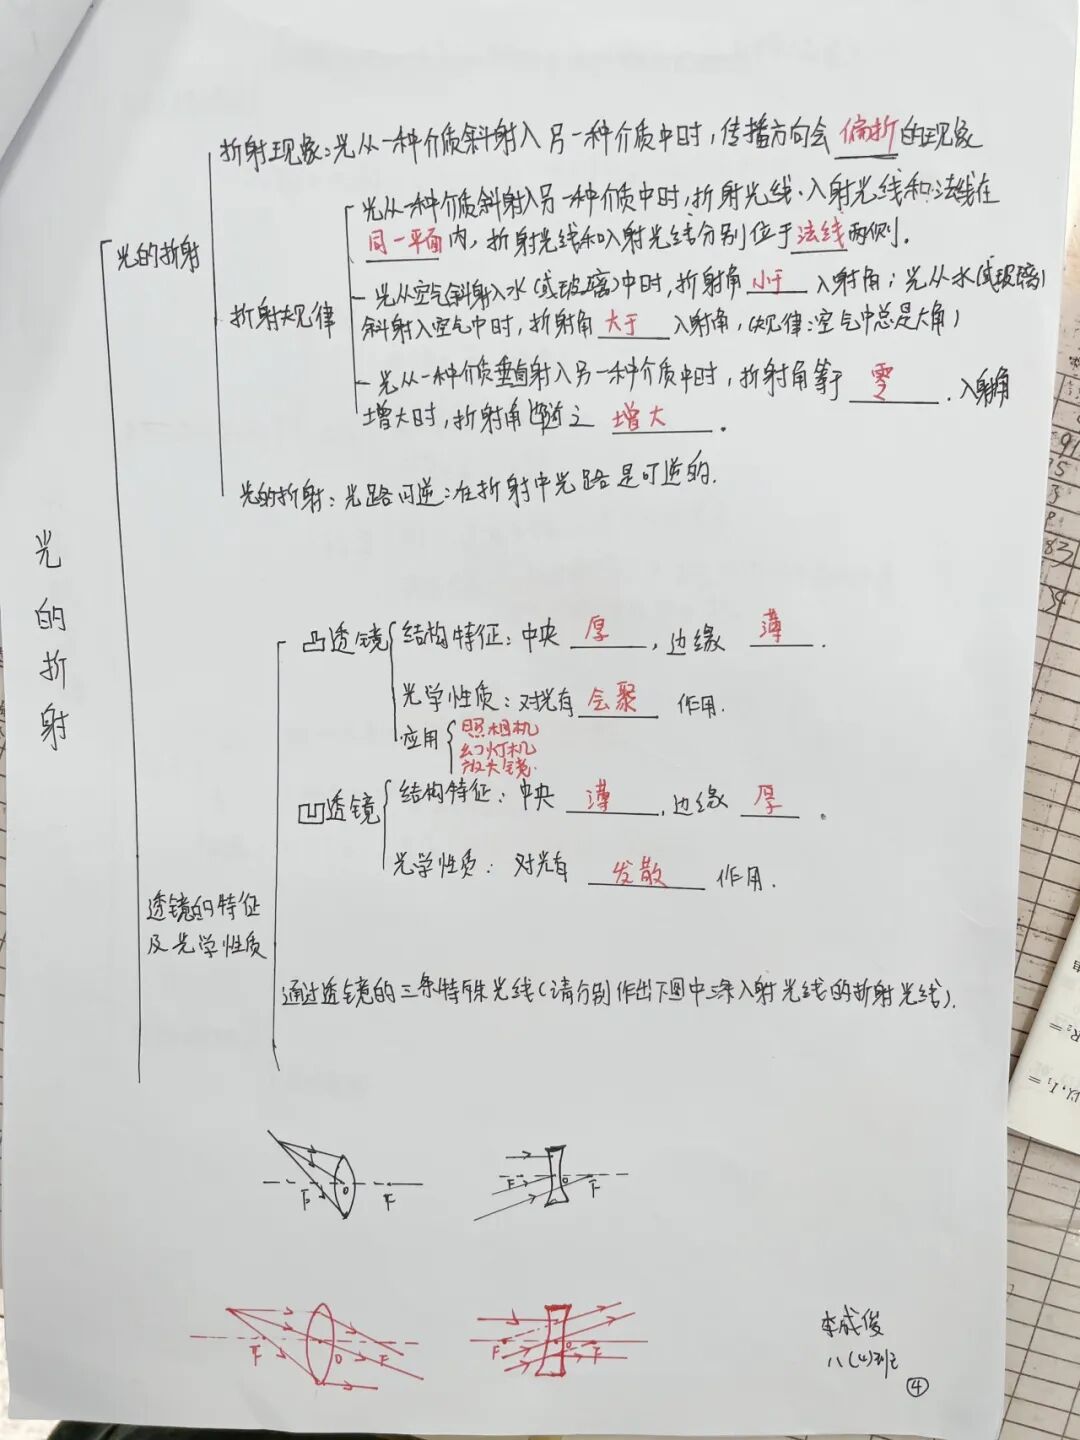 折射现象:光从一种介质斜射入另一种介质中时,传播方向会偏折的现象
光的折射
光从一种介质斜射入另一种介质中时,折射光线、入射光线和法线在
同一平面内,折射光线和入射光线分别位于法线两侧.
折射规律
光从空气斜射入水(或玻璃)中时,折射角小于入射角;光从水(或玻璃)
斜射入空气中时,折射角大于入射角,(规律:空气中总是大角)
光从一种介质垂直射入另一种介质中时,折射角等于零.入射角
增大时,折射角随之增大.
光的折射:光路可逆:在折射中光路是可逆的.
光的折射
凸透镜
结构特征:中央厚,边缘薄.
光学性质:对光有会聚作用.
应用
照相机
幻灯机
放大镜.
凹透镜
结构特征:中央薄,边缘厚.
光学性质:对光有发散作用.
透镜的特征
及光学性质
通过透镜的三条特殊光线(请分别作出下图中三条入射光线的折射光线).
F O F
F O F
F O F
F O F
李成俊
八(4)班
④
83
R₂=
以,I₁=